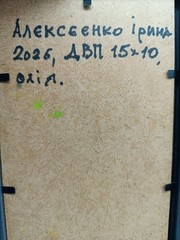 Алексєєнко ірина
2026, ДВП 15×10,
олія.